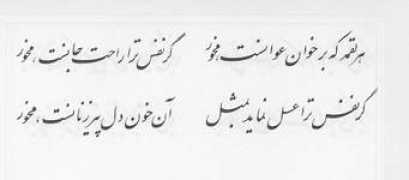 هر لقمه که بر خوان عوانست، مخور گر نفس ترا راحت جانست، مخور
گر نفس ترا عسل نماید بمثل آن خون دل پیرزنانست، مخور